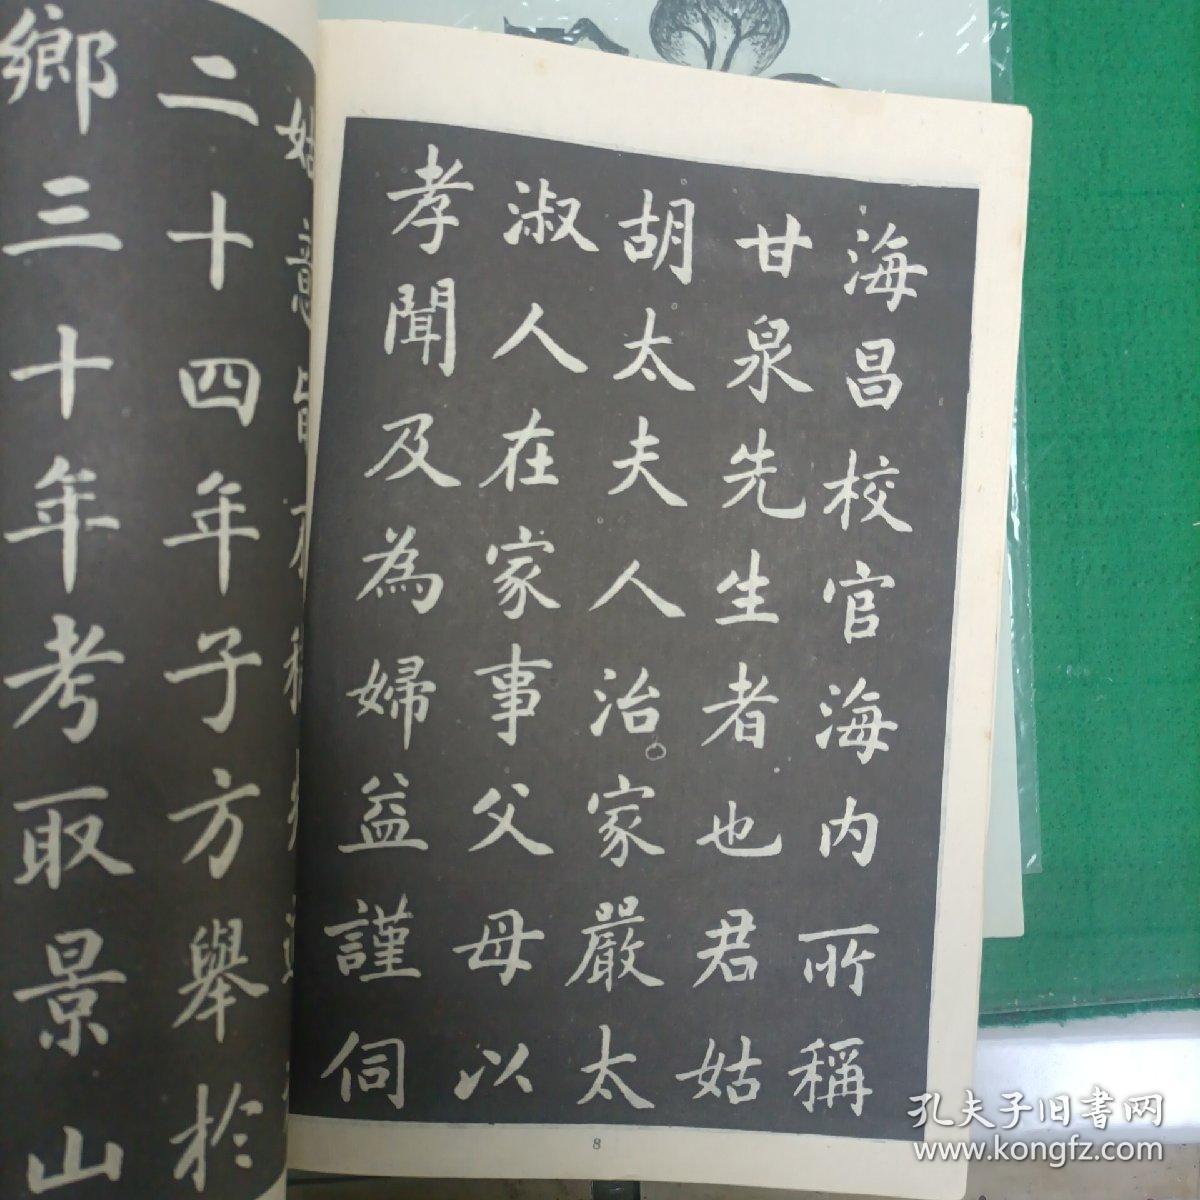 海昌校官海内所稱
甘泉先生者也君姑
胡太夫人治家嚴太
淑人在家事父母以
孝聞及為婦益謹伺
姑意
二十四年子方舉於
鄉三十年考取景山
8
孔夫子旧书网
www.kongfz.com